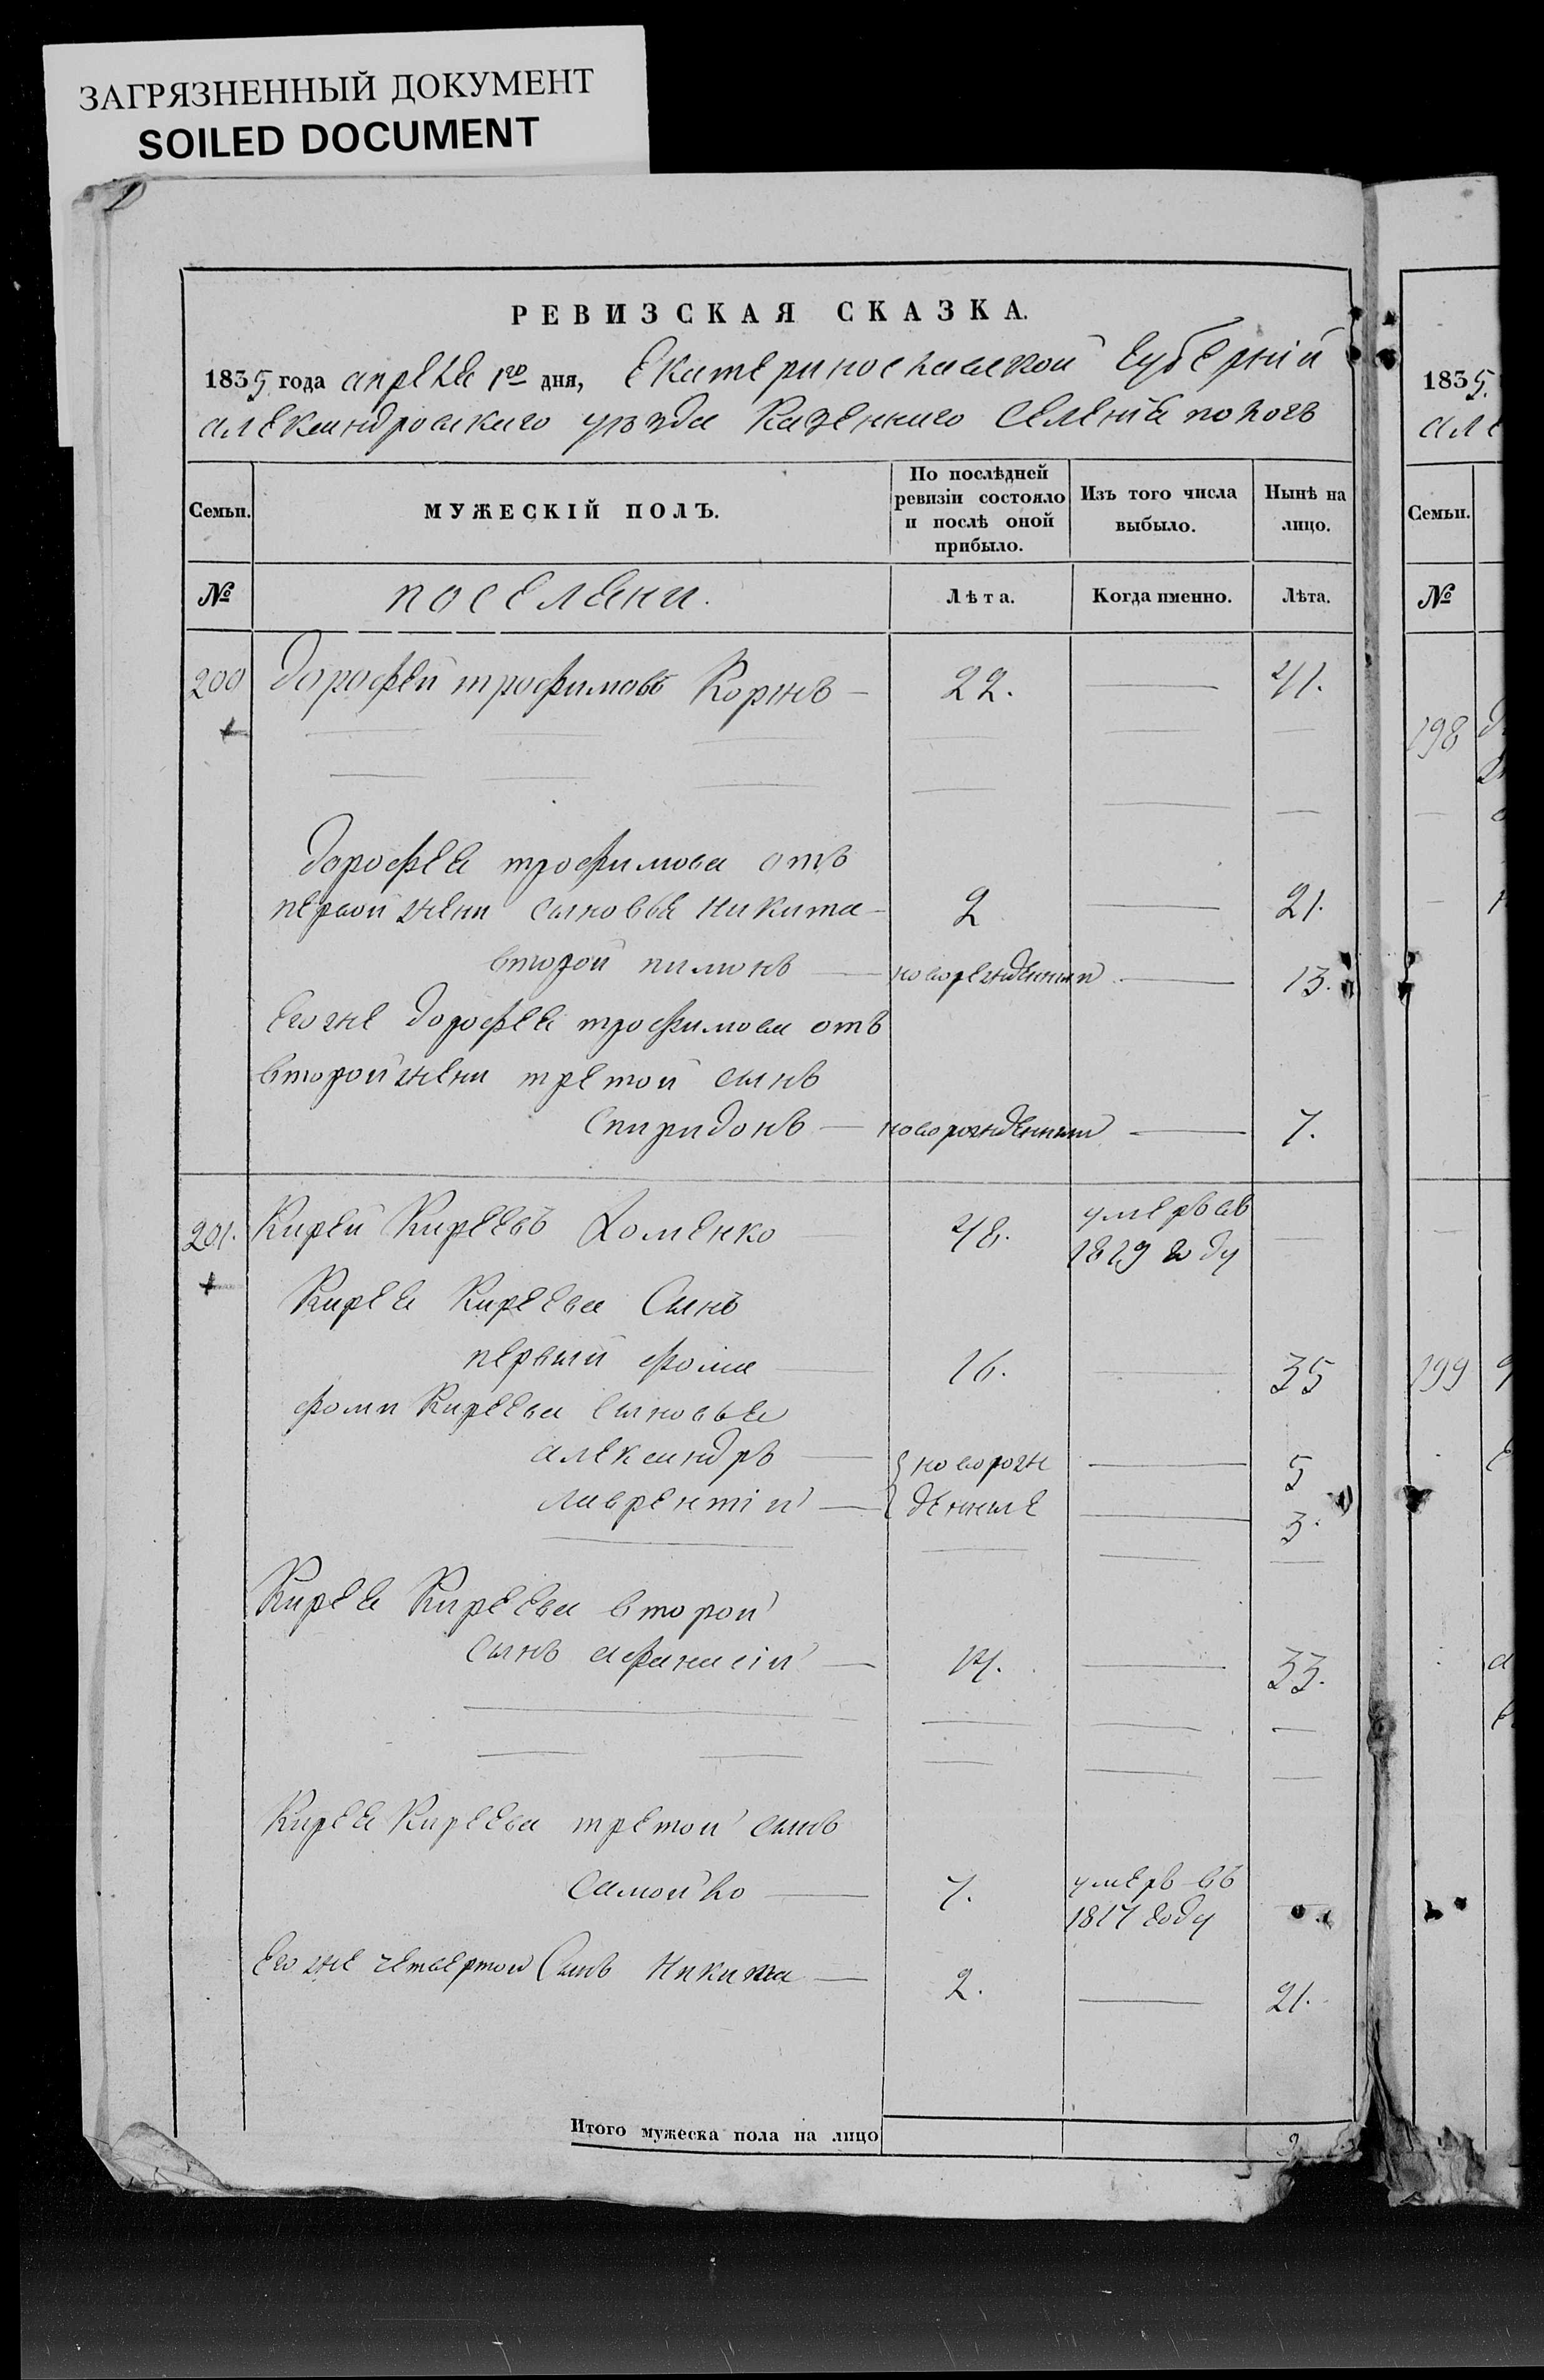 ЗАГРЯЗНЕННЫЙ ДОКУМЕНТ
SOILED DOCUMENT
РЕВИЗСКАЯ СКАЗКА.
1835 года апреля 1го дня, Екатеринославской губерніи
александровскаго уѣзда Казеннаго Селенія пологъ
Семьи.
МУЖЕСКІЙ ПОЛЪ.
По послѣдней
ревизіи состояло
и послѣ оной
прибыло.
Изъ того числа
выбыло.
Нынѣ на
лицо.
№
поселяни.
Лѣта.
Когда именно.
Лѣта.
200 дорофей трофимовъ Коржъ — 22. — 41.
дорофея трофимова отъ
первой жени сыновья никита — 2 — 21.
второй пимонъ — новорежденный — 13.
Его же дорофея трофимова отъ
второй жени третой сынъ
Спиридонъ — новорожденный — 7.
201. Кирей Киреевъ Хоменко — 48. умеръ въ
1829 году —
Кирея Киреева Сынъ
первый фома — 16. — 35
фоми Киреева сыновья
александръ — новорож — 5
лаврентій — денные — 3.
Кирея Киреева второй
сынъ афанасій — 14. — 33.
Кирея Киреева третой сынъ
Самойло — 7. умеръ въ
1817 году
Его же четвертой Сынъ Никита — 2. — 21.
Итого мужеска пола на лицо
1835.
але
Семьи.
№
198
199